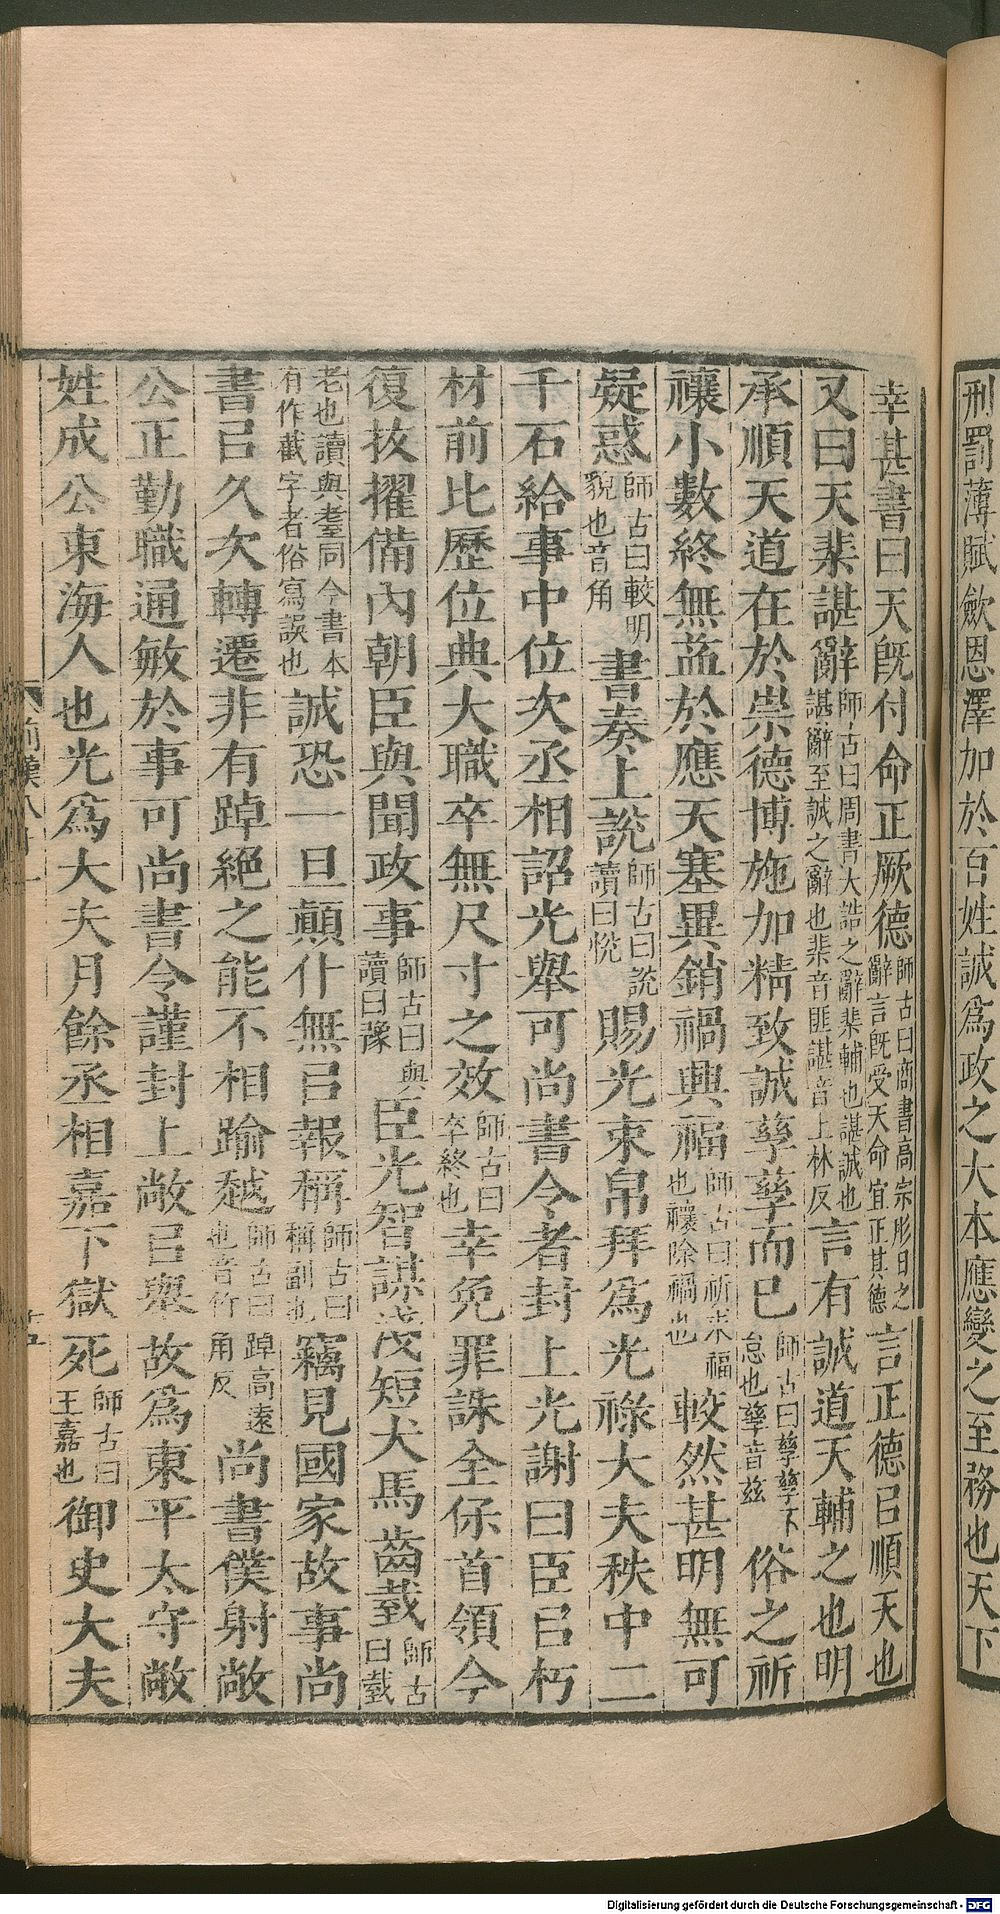 刑罰薄賦斂恩澤加於百姓誠爲政之大本應變之至務也天下
幸甚書曰天旣付命正厥德師古曰商書高宗肜日之辭言旣受天命宜正其德言正德㠯順天也
又曰天棐諶辭師古曰周書大誥之辭棐輔也諶誠也諶辭至誠之辭也棐音匪諶音上林反言有誠道天輔之也明
承順天道在於崇德博施加精致誠孳孳而已師古曰孳孳不怠也孳音兹俗之祈
禳小數終無益於應天塞異銷禍興福師古曰祈求福也禳除禍也較然甚明無可
疑惑師古曰較明貌也音角書奏上說師古曰說讀曰悅賜光束帛拜爲光祿大夫秩中二
千石給事中位次丞相詔光舉可尚書令者封上光謝曰臣㠯朽
材前比歷位典大職卒無尺寸之效師古曰卒終也幸免罪誅全保首領今
復拔擢備內朝臣與聞政事師古曰與讀曰豫臣光智謀淺短犬馬齒臷師古曰臷
老也讀與耋同今書本有作截字者俗寫誤也誠恐一旦顛仆無㠯報稱師古曰稱副也竊見國家故事尚
書㠯久次轉遷非有踔絶之能不相踰越師古曰踔高遠也音竹角反尚書僕射敞
公正勤職通敏於事可尚書令謹封上敞㠯舉故爲東平太守敞
姓成公東海人也光爲大夫月餘丞相嘉下獄死師古曰王嘉也御史大夫
前漢八十一
十五
Digitalisierung gefördert durch die Deutsche Forschungsgemeinschaft - DFG